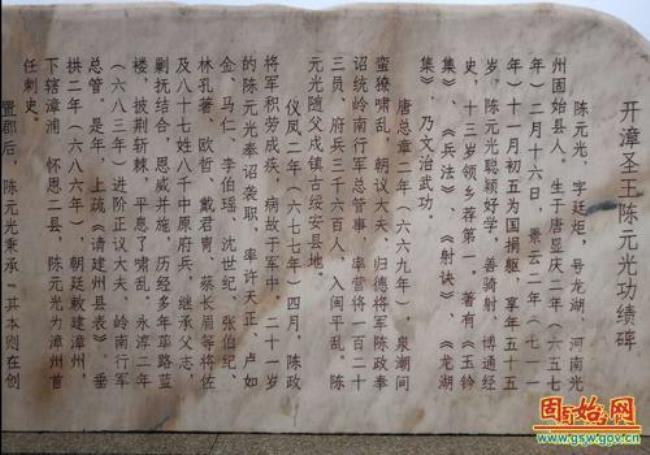 开漳圣王陈元光功绩碑
陈元光，字廷炬，号龙湖，河南光
州固始县人。生于唐显庆二年（六五七
年）二月十六日，景云二年（七一一
年）十一月初五为国捐躯，享年五十五
岁，陈元光聪颖好学，善骑射，博通经
史，十三岁领乡荐第一。著有《玉钤
集》、《兵法》、《射诀》、《龙湖
集》，乃文治武功。
唐总章二年（六六九年），泉潮间
蛮獠啸乱，朝议大夫、归德将军陈政奉
诏统岭南行军总管事，率营将一百二十
三员、府兵三千六百人，入闽平乱。陈
元光随父戍镇古绥安县地。
仪凤二年（六七七年）四月，陈政
将军积劳成疾，病故于军中，二十一岁
的陈元光奉诏袭职，率许天正、卢如
金、马仁、李伯瑶、沈世纪、张伯纪、
林孔著、欧哲、戴君胄、蔡长眉等将佐
及八十七姓八千中原府兵，继承父志，
剿抚结合，恩威并施，历经多年筚路蓝
楼，披荆斩棘，平息了啸乱。永淳二年
（六八三年）进阶正议大夫、岭南行军
总管。是年，上疏《请建州县表》。垂
拱二年（六八六年），朝廷敕建漳州，
下辖漳浦、怀恩二县，陈元光为漳州首
任刺史。
置郡后，陈元光秉承“其本则在创
固始网
www.gsw.gov.cn